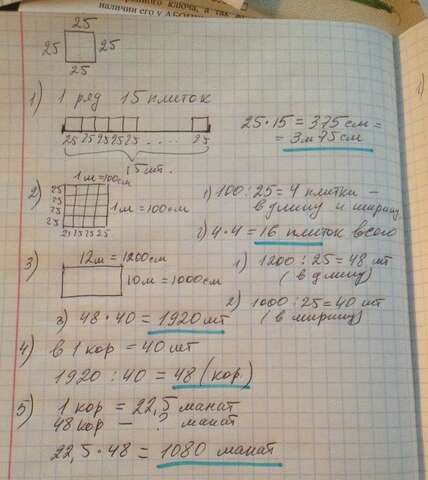 нного ключа, а так
наличии его у АБОН
25
25 25
25
1) 1 ряд 15 плиток
25 25 25 25 25 . . . . . 25
15 шт.
25 · 15 = 375 см =
= 3 м 75 см
2) 1 м = 100 см
25
25
25
25
1 м = 100 см
25 25 25 25
1) 100 : 25 = 4 плитки –
в длину и ширину
2) 4 · 4 = 16 плиток всего
3) 12 м = 1200 см
10 м = 1000 см
1) 1200 : 25 = 48 шт
(в длину)
2) 1000 : 25 = 40 шт
(в ширину)
3) 48 · 40 = 1920 шт
4) в 1 кор = 40 шт
1920 : 40 = 48 (кор)
5) 1 кор = 22,5 манат
48 кор – ? манат
22,5 · 48 = 1080 манат
1)